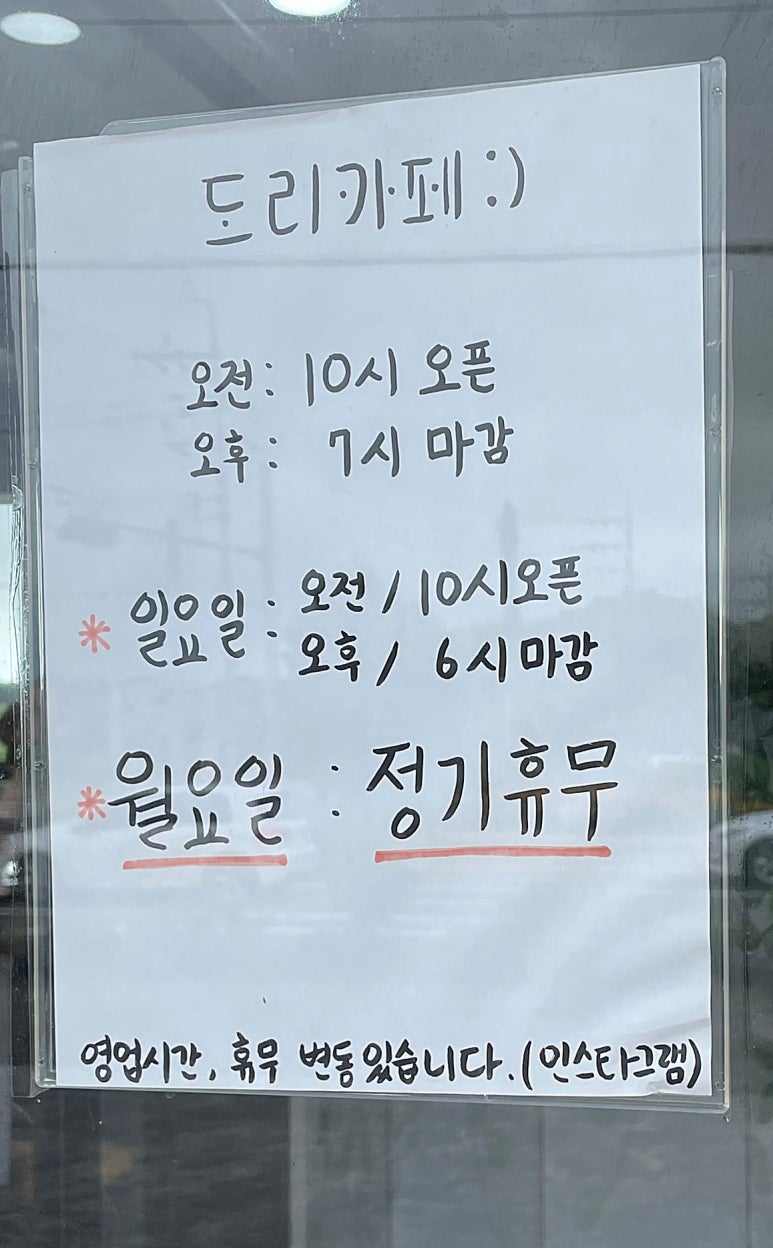 도리카페:)
오전: 10시 오픈
오후: 7시 마감
* 일요일: 오전/10시오픈
오후/ 6시마감
* 월요일 : 정기휴무
영업시간, 휴무 변동있습니다.(인스타그램)